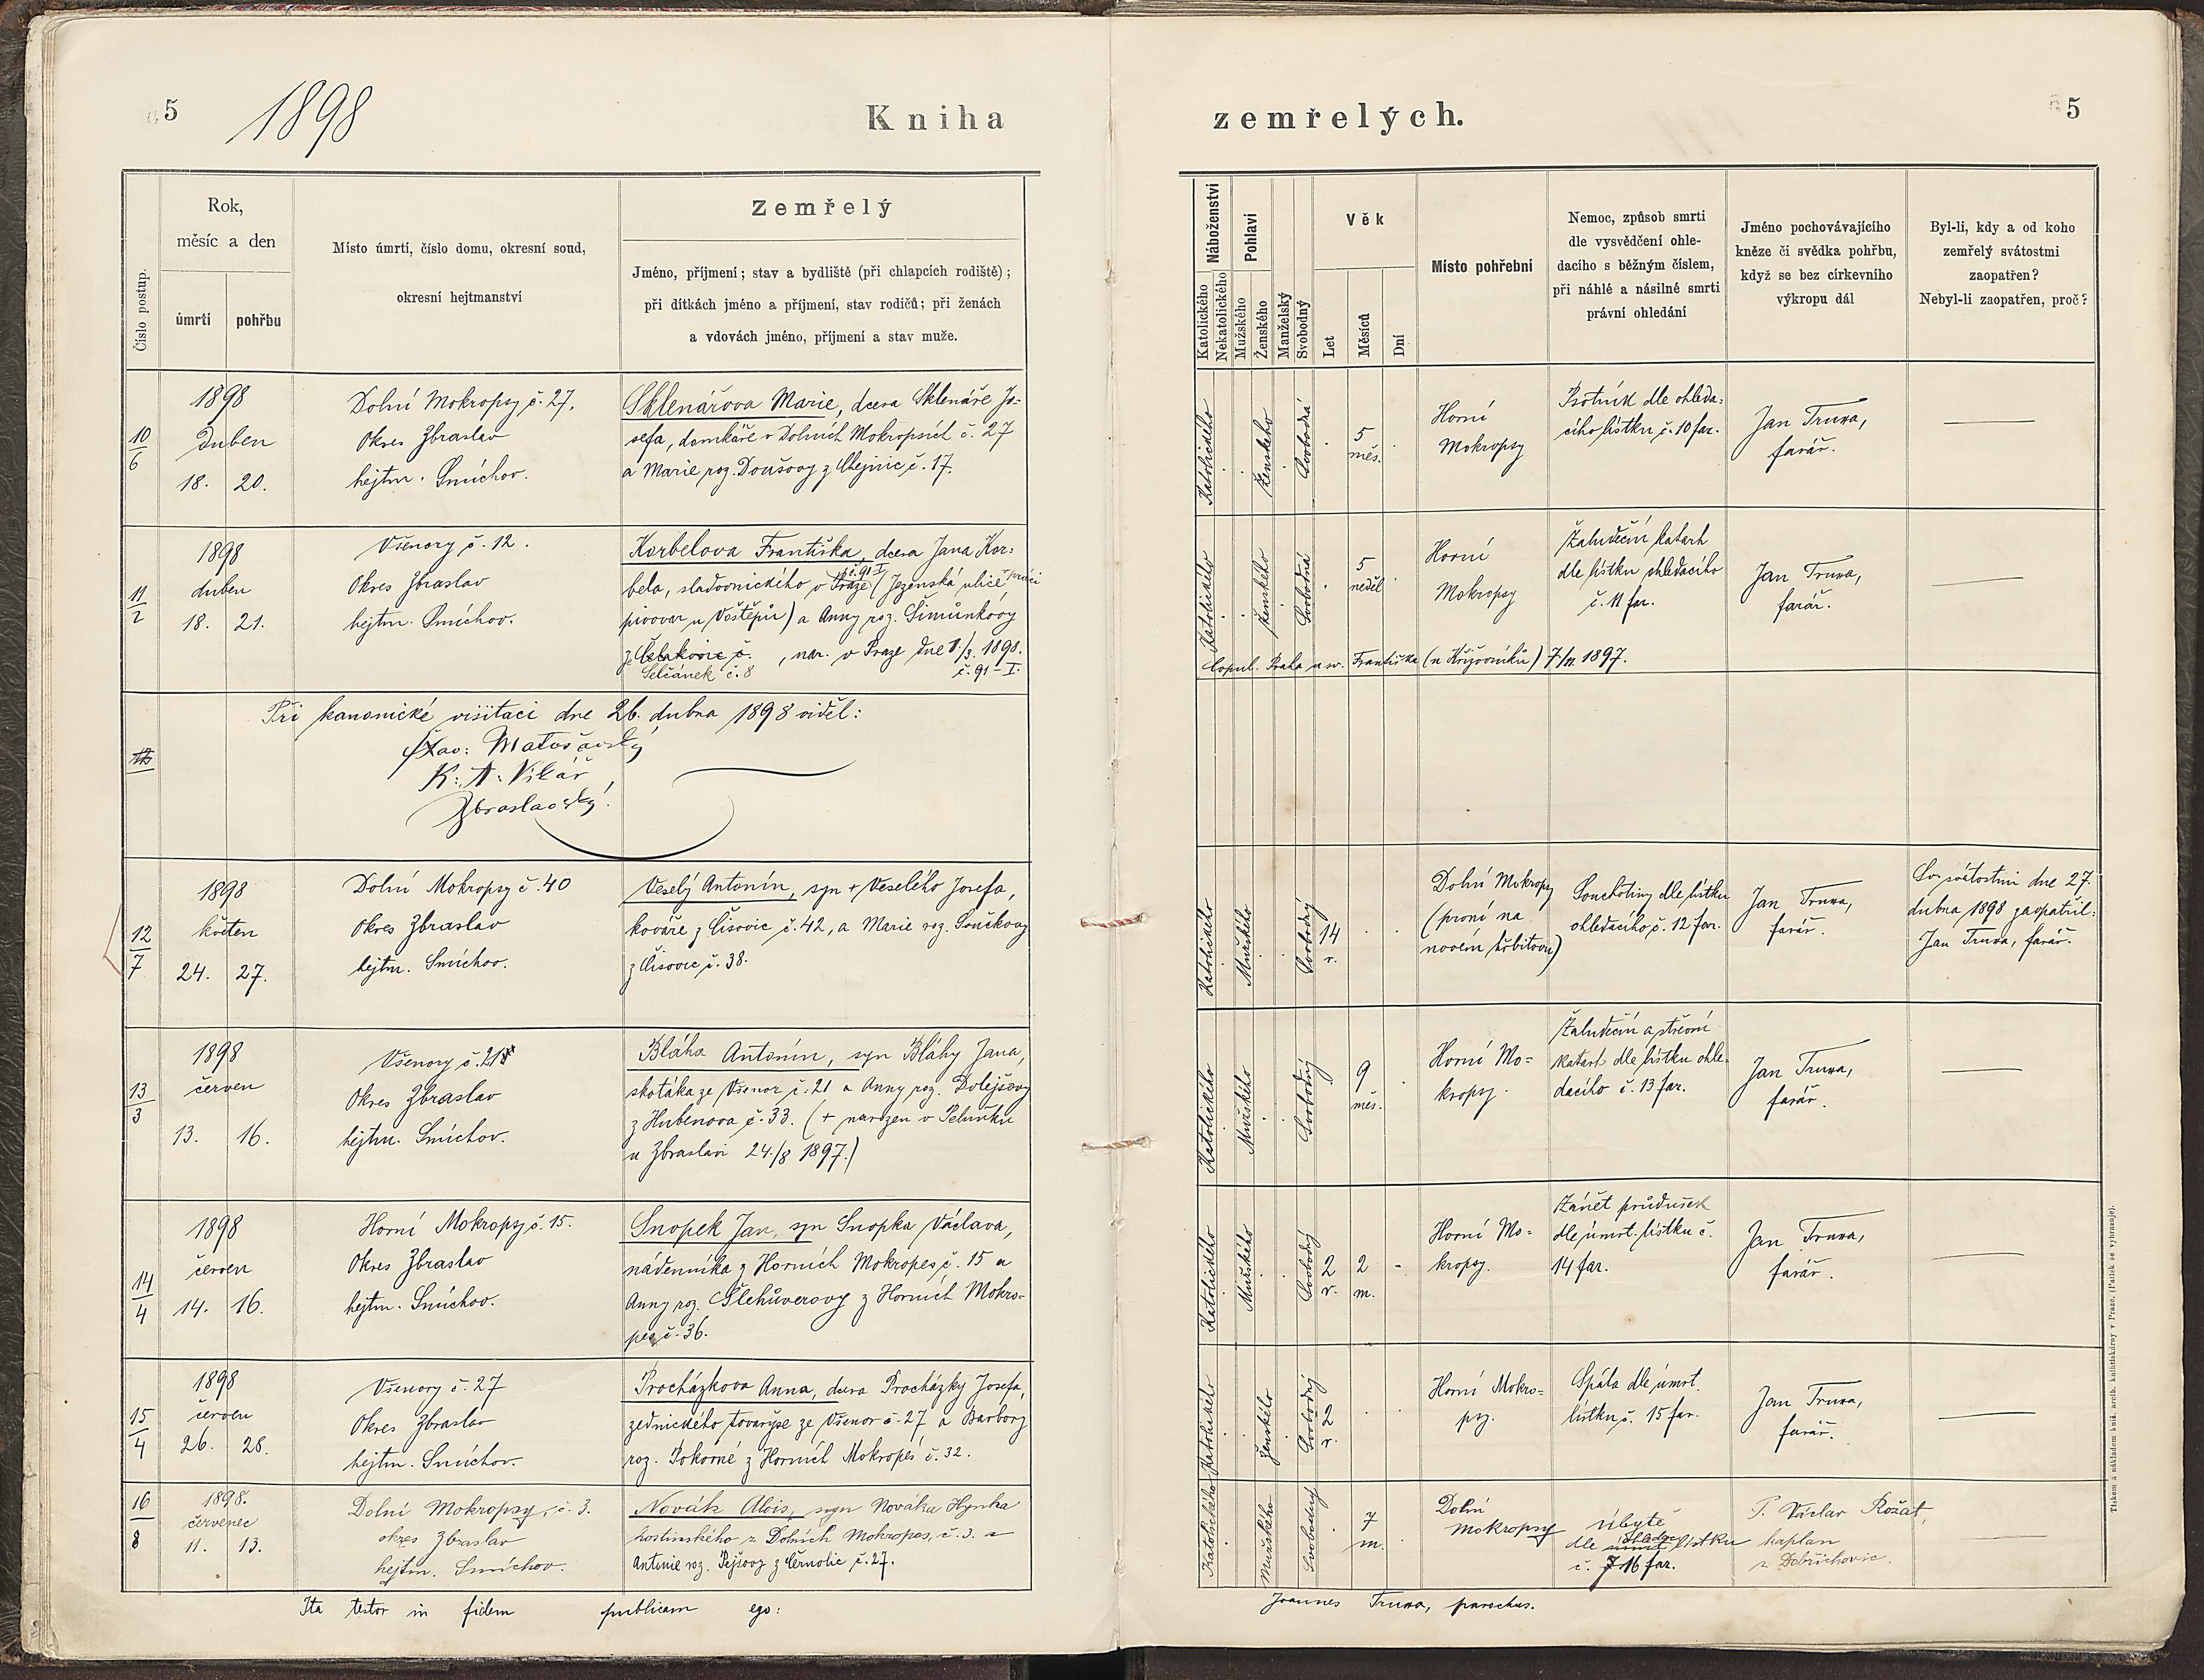 5
1898
Kniha
zemřelých.
5
Číslo postup.
Rok,
měsíc a den
úmrtí
pohřbu
Místo úmrtí, číslo domu, okresní soud,
okresní hejtmanství
Zemřelý
Jméno, příjmení; stav a bydliště (při chlapcích rodiště);
při dítkách jméno a příjmení, stav rodičů; při ženách
a vdovách jméno, příjmení a stav muže.
Náboženství
Katolického
Nekatolického
Pohlaví
Mužského
Ženského
Manželský
Svobodný
Věk
Let
Měsíců
Dní
Místo pohřební
Nemoc, způsob smrti
dle vysvědčení ohle-
dacího s běžným číslem,
při náhlé a násilné smrti
právní ohledání
Jméno pochovávajícího
kněze či svědka pohřbu,
když se bez církevního
výkropu dál
Byl-li, kdy a od koho
zemřelý svátostmi
zaopatřen?
Nebyl-li zaopatřen, proč?
10
6
1898
Duben
18. 20.
Dolní Mokropsy č. 27.
Okres Zbraslav
hejtm. Smíchov.
Sklenářova Marie, dcera Sklenáře Jo=
sefa, domkáře v Dolních Mokropsích č. 27
a Marie roz. Doušovy z Chejnic č. 17.
Katolického
Ženského
Svobodná
5
měs.
Horní
Mokropsy
Psotník dle ohleda=
cího lístku č. 10 far.
Jan Truxa,
farář.
11
2
1898
duben
18. 21.
Všenory č. 12.
Okres Zbraslav
hejtm. Smíchov.
Korbelova Františka, dcera Jana Kor=
č. 91 I
bela, sladovnického v Praze (Jezenská ulice v práci
pivovar u Vaštěpů) a Anny roz. Šimůnkovy
z Čelakovic č. , nar. v Praze dne 8/3. 1898.
Selčánek č. 8
č. 91-I.
Katolického
Ženského
Svobodná
5
neděl
Horní
Mokropsy
Žaludeční katarh
dle lístku ohledacího
č. 11 far.
Jan Truxa,
farář.
Copul. Praha u sv. Františka (u Křižovníků) 7/11. 1897.
Při kanonické visitaci dne 26. dubna 1898 viděl:
K. A. Vikář
Zbraslavský.
12
7
1898
květen
24. 27.
Dolní Mokropsy č. 40
Okres Zbraslav
hejtm. Smíchov.
Veselý Antonín, syn + Veselého Josefa,
kováře z Čisovic č. 42, a Marie roz. Součkovy
z Čisovic č. 38.
Katolického
Mužského
Svobodný
14
r.
Dolní Mokropsy
(první na
novém hřbitovu)
Souchotiny dle lístku
ohledacího č. 12 far.
Jan Truxa,
farář.
Sv. svátostmi dne 27.
dubna 1898 zaopatřil:
Jan Truxa, farář.
13
3
1898
červen
13. 16.
Všenory č. 21
Okres Zbraslav
hejtm. Smíchov.
Bláha Antonín, syn Bláhy Jana,
skotáka ze Všenor č. 21 a Anny roz. Dolejšovy
z Hubenova č. 33. (+ narozen v Peluňku
u Zbraslavi 24./8 1897.)
Katolického
Mužského
Svobodný
9
měs.
Horní Mo=
kropsy.
Žaludeční a střevní
katarh dle lístku ohle=
dacího č. 13 far.
Jan Truxa,
farář.
14
4
1898
červen
14. 16.
Horní Mokropsy č. 15.
Okres Zbraslav
hejtm. Smíchov.
Snopek Jan, syn Snopka Václava,
nádenníka z Horních Mokropes č. 15 a
Anny roz. Šlehůverovy z Horních Mokro-
pes č. 36.
Katolického
Mužského
Svobodný
2
r.
2
m.
-
Horní Mo-
kropsy.
Zánět průdušek
dle úmrt. lístku č.
14 far.
Jan Truxa,
farář.
15
4
1898
červen
26. 28.
Všenory č. 27
Okres Zbraslav
hejtm. Smíchov.
Procházkova Anna, dcera Procházky Josefa,
zednického tovaryše ze Všenor č. 27 a Barbory
roz. Pokorné z Horních Mokropes č. 32.
Katolického
Ženského
Svobodný
2
r.
Horní Mokro-
psy.
Spála dle úmrt.
lístku č. 15 far.
Jan Truxa,
farář.
16
8
1898.
červenec
11. 13.
Dolní Mokropsy, č. 3.
okres Zbraslav
hejtm. Smíchov.
Novák Alois, syn Nováka Hynka
hostinského z Dolních Mokropes, č. 3. a
Antonie roz. Pejšovy z Černolic č. 27.
Katolického
Mužského
Svobodný
7
m.
Dolní
Mokropsy
úbytě
dle ohledac. lístku
č. 16 far.
P. Václav Rožat,
kaplan
z Dobřichovic.
Ita testor in fidem publicam ego:
Joannes Truxa, parochus.
Tiskem a nákladem kníž. arcib. knihtiskárny v Praze. (Patisk se vyhrazuje).